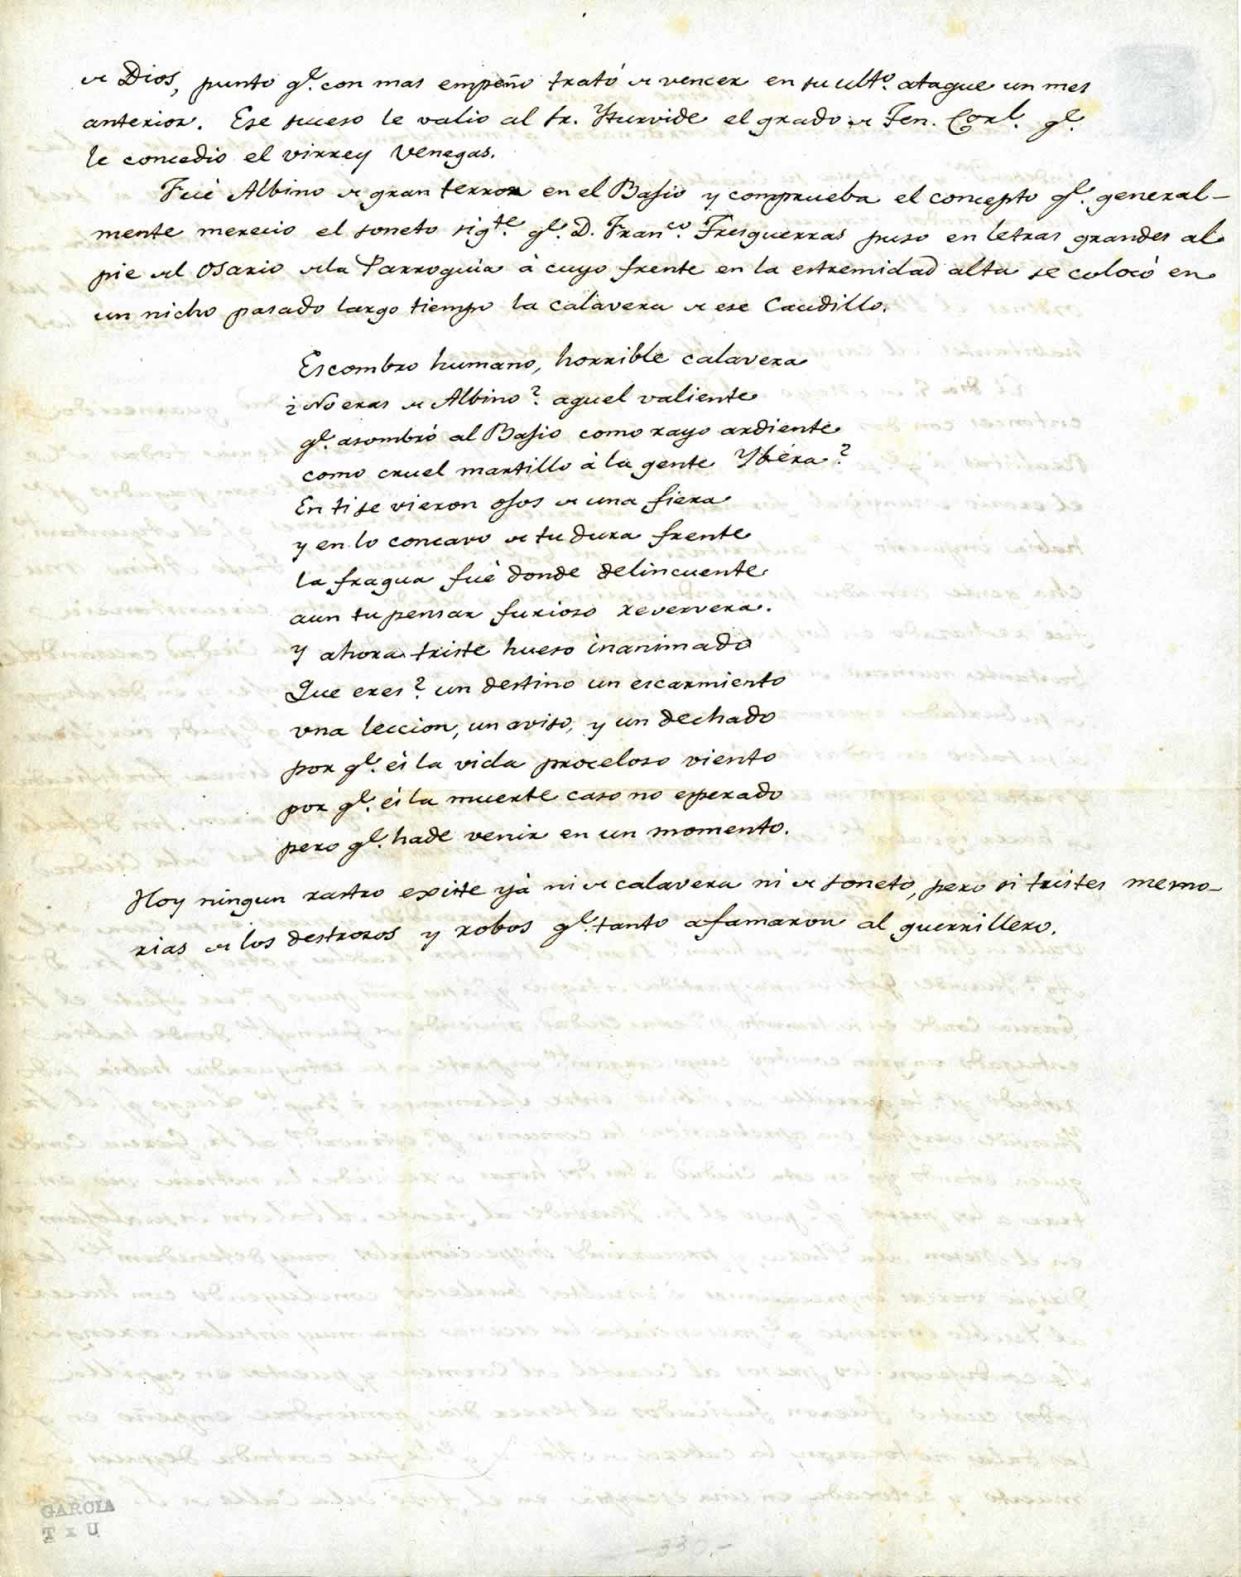 de Dios, punto qe. con mas empeño trató de vencer en su ulto. ataque un mes
anterior. Ese suceso le valio al Sr. Yturvide el grado de Ten. Corl. qe.
le concedio el virrey Venegas.
Fué Albino de gran terror en el Bajio y comprueba el concepto qe. general-
mente merecio el soneto sigte. qe. D. Franco. Tresguerras puso en letras grandes al
pie del Osario de la Parroquia à cuyo frente en la estremidad alta se colocó en
un nicho pasado largo tiempo la calavera de ese Caudillo.
Escombro humano, horrible calavera
¿No eras de Albino? aquel valiente
qe. asombró al Bajio como rayo ardiente
como cruel martillo à la gente Ybéra?
En ti se vieron ojos de una fiera
y en lo concavo de tu dura frente
la fragua fué donde delincuente
aun tu pensar furioso reververa.
Y ahora triste hueso inanimado
Que eres? un destino un escarmiento
una leccion, un aviso, y un dechado
por qe. és la vida proceloso viento
por qe. és la muerte caso no esperado
pero qe. hade venir en un momento.
Hoy ningun rastro existe yà ni de calavera ni de soneto, pero si tristes memo-
rias de los destrozos y robos qe. tanto afamaron al guerrillero.
GARCIA
T x U
-330.-